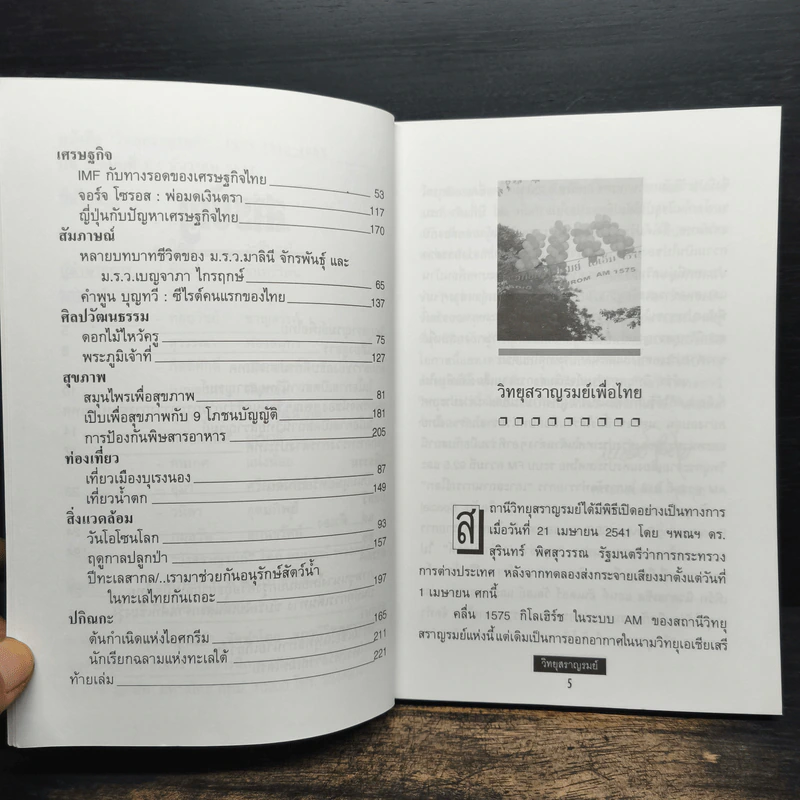 เศรษฐกิจ
IMF กับทางรอดของเศรษฐกิจไทย 53
จอร์จ โซรอส : พ่อมดเงินตรา 117
ญี่ปุ่นกับปัญหาเศรษฐกิจไทย 170
สัมภาษณ์
หลายบทบาทชีวิตของ ม.ร.ว.มาลินี จักรพันธุ์ และ
ม.ร.ว.เบญจาภา ไกรฤกษ์ 65
คำพูน บุญทวี : ซีไรต์คนแรกของไทย 137
ศิลปวัฒนธรรม
ดอกไม้ไหว้ครู 75
พระภูมิเจ้าที่ 127
สุขภาพ
สมุนไพรเพื่อสุขภาพ 81
เปิบเพื่อสุขภาพกับ 9 โภชนบัญญัติ 181
การป้องกันพิษสารอาหาร 205
ท่องเที่ยว
เที่ยวเมืองบุเรงนอง 87
เที่ยวน้ำตก 149
สิ่งแวดล้อม
วันโอโซนโลก 93
ฤดูกาลปลูกป่า 157
ปีทะเลสากล/..เรามาช่วยกันอนุรักษ์สัตว์น้ำ
ในทะเลไทยกันเถอะ 197
ปกิณกะ 165
ต้นกำเนิดแห่งไอศกรีม 211
นักเรียกฉลามแห่งทะเลใต้ 221
ท้ายเล่ม
AM 1575
วิทยุสราญรมย์เพื่อไทย
สถานีวิทยุสราญรมย์ได้มีพิธีเปิดอย่างเป็นทางการ
เมื่อวันที่ 21 เมษายน 2541 โดย ฯพณฯ ดร.
สุรินทร์ พิศสุวรรณ รัฐมนตรีว่าการกระทรวง
การต่างประเทศ หลังจากทดลองส่งกระจายเสียงมาตั้งแต่วันที่
1 เมษายน ศกนี้
คลื่น 1575 กิโลเฮิร์ซ ในระบบ AM ของสถานีวิทยุ
สราญรมย์แห่งนี้ แต่เดิมเป็นการออกอากาศในนามวิทยุเอเชียเสรี
วิทยุสราญรมย์
5